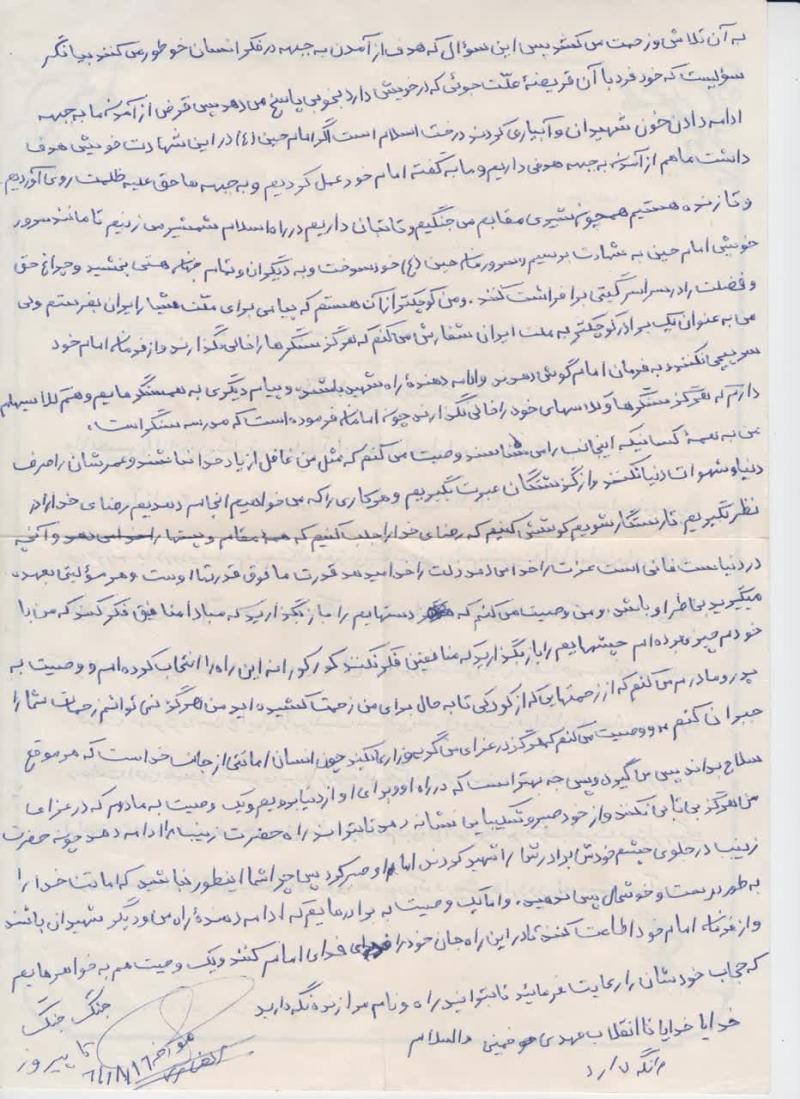 به آن تلاش و زحمت می کشد پس این سؤال که هدف از آمدن به جبهه در فکر انسان خطور می کند بیانگر
سؤلیست که خود فرد با آن قریضهٔ علّت جوئی که در خویش دارد بخوبی پاسخ می دهد پس غرض از آمدن ما به جبهه
ادامه دادن خون شهیدان و آبیاری کردن درخت اسلام است اگر امام حسین (ع) در این شهادت خویش هدف
داشت ما هم از آمدن به جبهه هدفی داریم و ما به گفته امام خود عمل کردیم و به جبهه ها حق علیه ظلمت روی آوردیم
و تا زنده هستیم همچون شیری مقاوم می جنگیم و تا توان داریم در راه اسلام شمشیر می زنیم تا مانند سرور
خویش امام حسین به شهادت برسیم سرورمان حسین (ع) خود سوخت و به دیگران و تمام جهان هستی بخشید و چراغ حق
و فضلت را در سراسر گیتی برافراشت کند. و من کوچکتر از آن هستم که پیامی برای ملّت هشیار ایران بفرستم ولی
من به عنوان یک برادر کوچکتر به ملت ایران سفارش می کنم که هرگز سنگرها را خالی نگذارند و از فرمان امام خود
سرپیچی نکنند و به فرمان امام گوش دهند و ادامه دهندهٔ راه شهید باشند و پیام دیگری به همسنگرهایم و هم کلاسیهایم
دارم که هرگز سنگرها و کلاسهای خود را خالی نگذارند چون اماممان فرموده است که مدرسه سنگر است.
من به همهٔ کسانیکه اینجانب را می شناسند وصیت می کنم که مثل من غافل از یاد خدا نباشند و عمرشان را صرف
دنیا و شهوات دنیا نکنند و از گذشتگان عبرت بگیریم و هر کاری را که می خواهیم انجام دهیم رضای خدا را در
نظر بگیریم تا رستگار شویم کوشش کنیم که رضای خدا را جلب کنیم که همه مقام و پستها را خدا می دهد و آنچه
در دنیاست فانی است عزت را خدا می دهد ذلت را خدا میدهد قدرت ما فوق قدرتها اوست و هر مسؤلیتی بعهده
میگیرید بخاطر او باشد. و من وصیت می کنم که دستهایم را باز بگذارید که مبادا منافقین فکر کنند که من با
خودم چیزی برده ام چشمهایم را باز بگذارید که منافقین فکر نکنند کورکورانه این راه را انتخاب کرده ام و وصیت به
پدر و مادرم می کنم که از زحمتهایی که از کودکی تا به حال برای من زحمت کشیده اید من هرگز نمی توانم زحمات شما را
جبران کنم و وصیت می کنم که هرگز در عزای من گریه و زاری نکنید چون انسان امانتی از جانب خداست که هر موقع
صلاح بداند پس می گیرد و پس چه بهتر است که در راه او و برای او از دنیا برویم و یک وصیت به مادرم که در عزای
من هرگز بی تابی نکنند و از خود صبر و شکیبایی نشانه دهد تا بتواند راه حضرت زینب را ادامه دهد چونه حضرت
زینب در جلوی چشم خودش برادرش را شهید کردند اما او صبر کرد پس چرا شما اینطور نباشید که امانت خدا را
به طور درست و خوشحال پس ندهید. و اما یک وصیت به برادرهایم که ادامه دهندهٔ راه من و دیگر شهیدان باشند
و از فرمان امام خود اطاعت کنند تا در این راه جان خود را فدای امام کنند و یک وصیت هم به خواهرهایم
که حجاب خودشان را رعایت فرمائید تا بتوانید راه و نام مرا زنده نگه دارید
خدایا خدایا تا انقلاب مهدی خمینی را نگه دارد والسلام
جنگ جنگ
تا پیروز
مورخه ۶۴/۸/۱۶